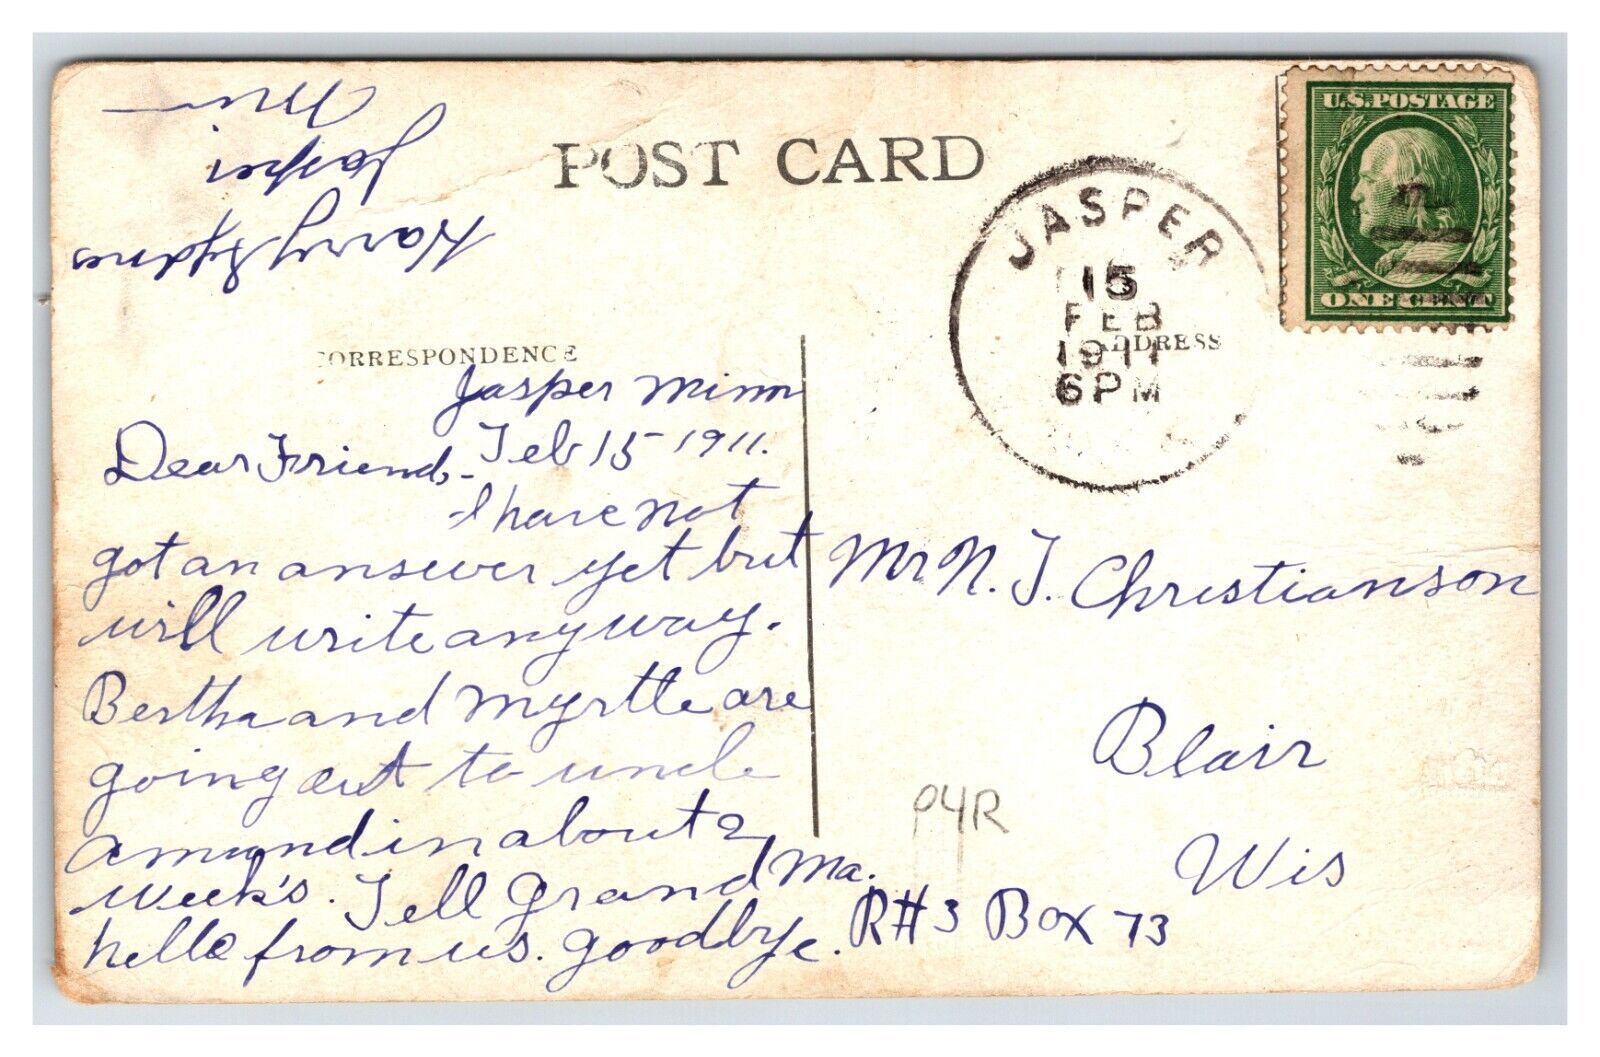 POST CARD
U.S. POSTAGE
ONE CENT
JASPER
15
FEB
1911
6PM
CORRESPONDENCE
ADDRESS
Harry
Jasper
Min
Jasper Minn
Feb 15 1911.
Dear Friend,-
I have not
got an answer yet but
will write anyway.
Bertha and Myrtle are
going out to uncle
Amund in about 2
week's. Tell Grand Ma.
hello from us. Goodbye.
Mr N. T. Christianson
Blair
Wis
R#3 Box 73
P4R